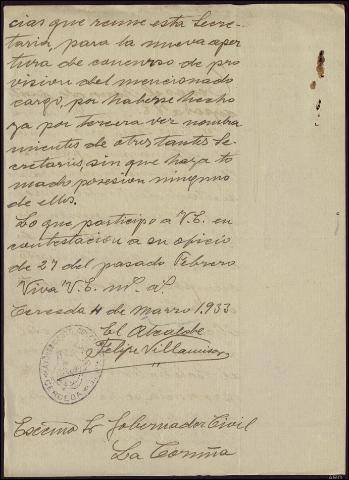 cias que reune esta Secre-
taria, para la nueva aper
tura de concurso de pro
vision del mencionado
cargo, por haberse hecho
ya por tercera vez nombra
mientos de otros tantos Se
cretarios, sin que haya to
mado posesion ninguno
de ellos.
Lo que participo a V.E. en
contestacion a su oficio
de 27 del pasado Febrero
Viva V.E. m.s a.s
Cerceda 4 de Marzo 1.933
El Alcalde
Felipe Villamisar
CERCEDA
Excmo Sr Gobernador Civil
La Coruña